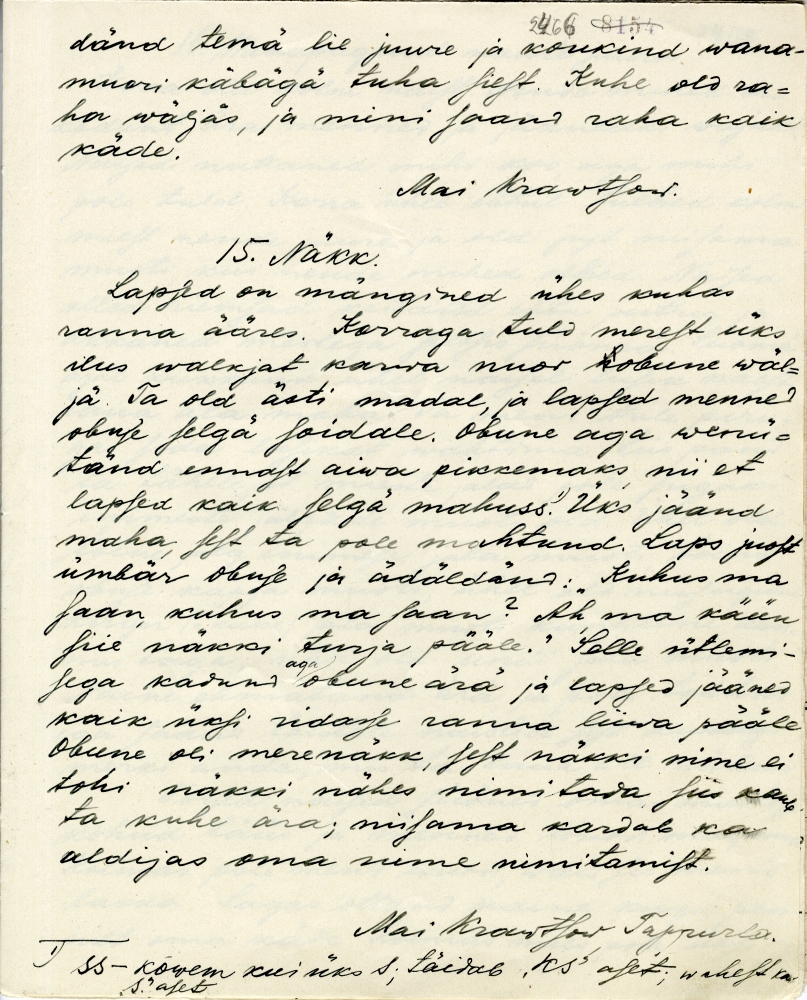 2466 8154
dänd temä lie juure ja koukind wana-
muori käbägä tuha siest. Kuhe old ra=
ha wäljäs, ja mini saand raha kaik
käde.
Mai Krawtsow.
15. Näkk.
Lapsed on mängined ühes kuhas
ranna ääres. Korraga tuld merest üks
ilus walkjat karwa nuor obune wäl=
jä. Ta old ästi madal, ja lapsed menned
obuse selgä soidale. Obune aga wenü=
tänd ennast aiwa pikkemaks, ni et
lapsed kaik selgä mahuss¹⁾. Üks jäänd
maha, sest ta pole mahtund. Laps juost
ümbär obuse ja ädäldänd: "Kuhus ma
saan, kuhus ma saan? Ah ma käün
siie näkki turja pääle." Selle ütlemi-
sega kadund aga obune ärä ja lapsed jääned
kaik üksi ridasse ranna liiwa pääle
Obune oli merenäkk, sest näkki nime ei
tohi näkki nähes nimitada, siis kaub
ta kuhe ära; niisama kardab ka
aldijas oma nime nimitamist.
Mai Krawtsow, Tappurla.
1) ss – kowem kui üks s; täidab "ks" aset; wahest ka
"s" aset